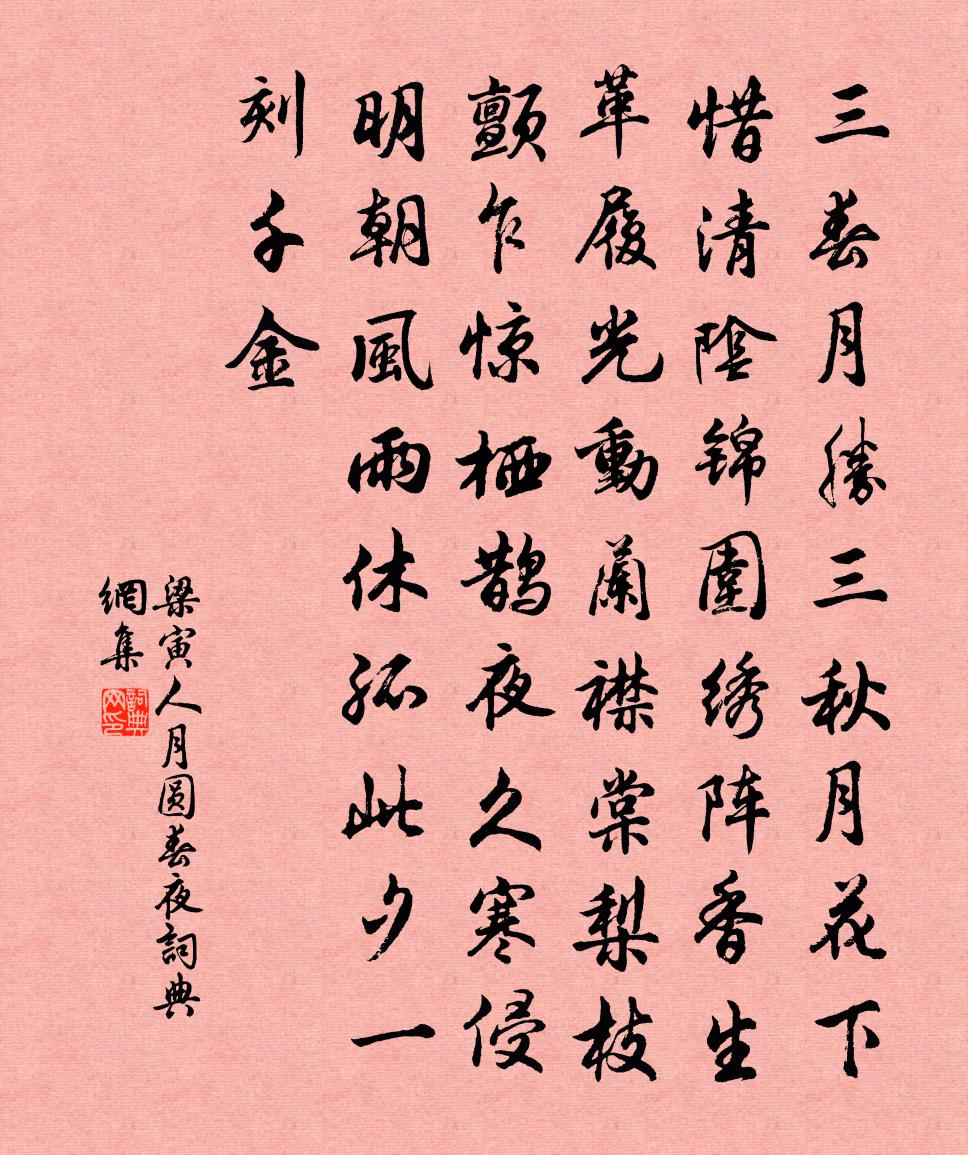 三春月勝三秋月花下
惜清陰锦圍绣阵香生
革履光動蘭襟棠梨枝
颤乍惊栖鹊夜久寒侵
明朝風雨休孤此夕一
刻千金
梁寅人月圆春夜詞典
網集
詞典网印